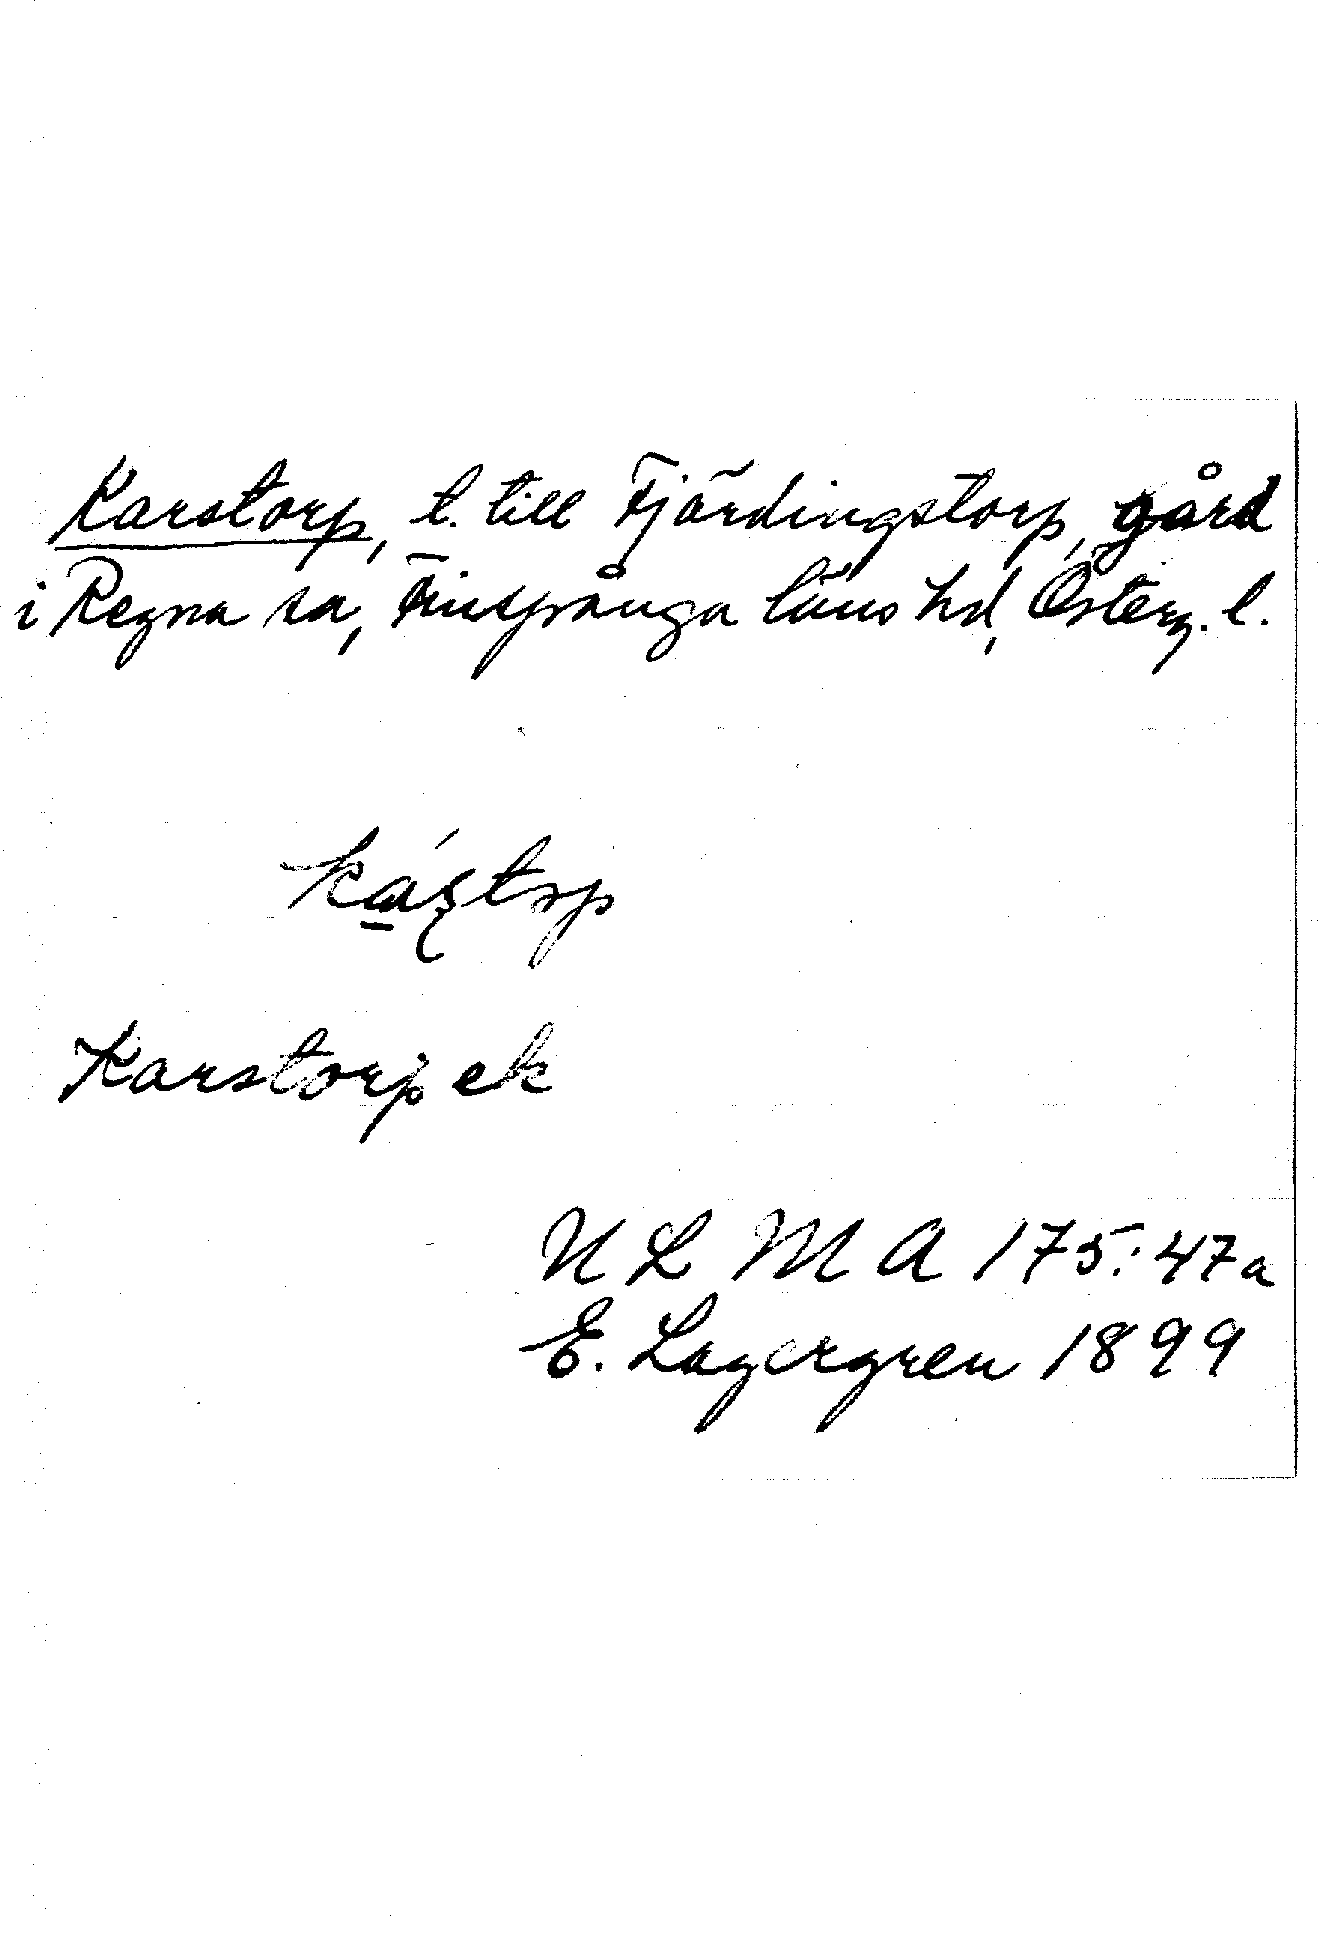 Karstorp, t. till Fjärdingstorp, gård
i Regna sn, Finspånga läns hd, Österg. l.
Karstorp ek
N L M A 175:47a
E. Lagergren 1899